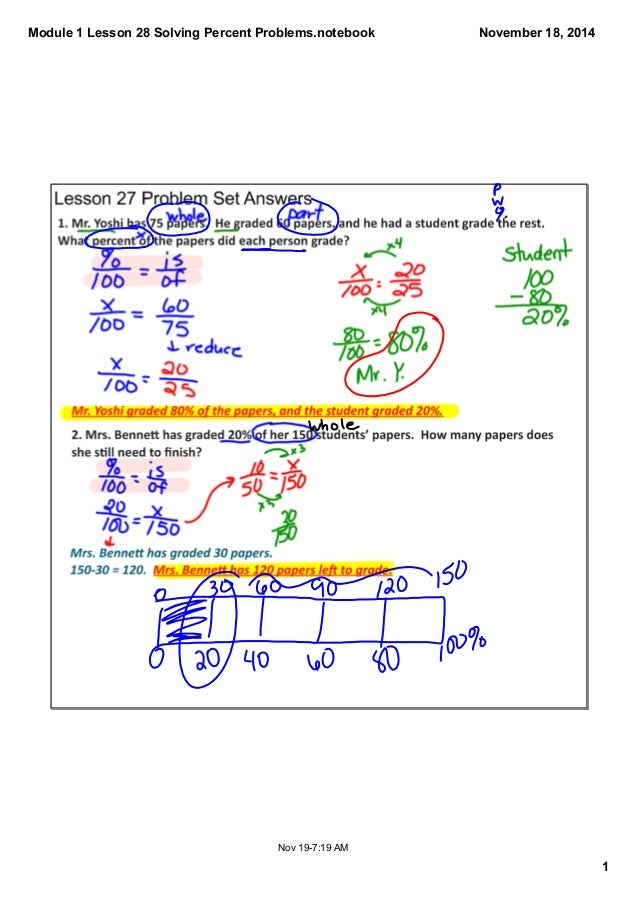 Module 1 Lesson 28 Solving Percent Problems.notebook
November 18, 2014
P
W
%
Lesson 27 Problem Set Answers
whole
part
1. Mr. Yoshi has 75 papers. He graded 60 papers, and he had a student grade the rest.
x
What percent of the papers did each person grade?
%/100 = is/of
x/100 = 60/75
↓ reduce
x/100 = 20/25
x4
x/100 = 20/25
x4
80/100 = 80%
Mr. Y.
Student
100
-80
20%
Mr. Yoshi graded 80% of the papers, and the student graded 20%.
whole
2. Mrs. Bennett has graded 20% of her 150 students' papers. How many papers does
she still need to finish?
%/100 = is/of
20/100 = x/150
x3
10/50 = x/150
x3
Mrs. Bennett has graded 30 papers.
150-30 = 120. Mrs. Bennett has 120 papers left to grade.
0 30 60 90 120 150
0 20 40 60 80 100%
Nov 19-7:19 AM
1